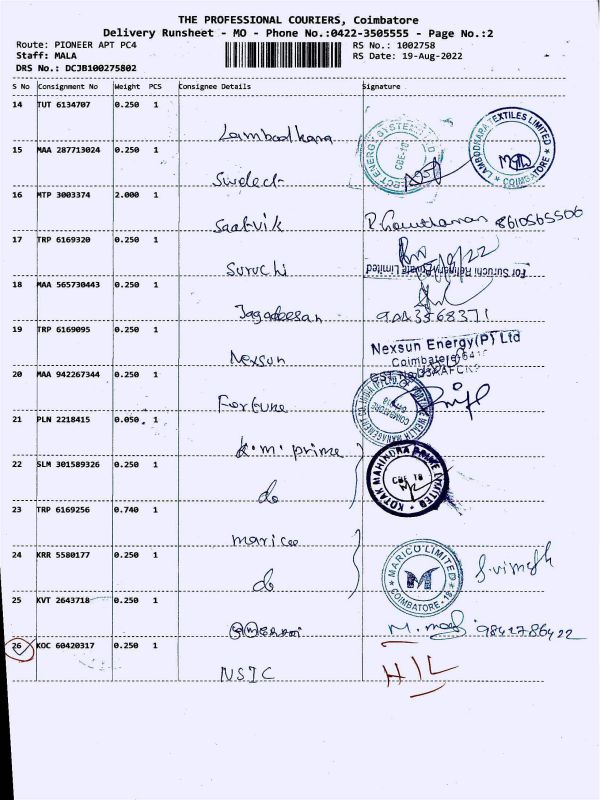 THE PROFESSIONAL COURIERS, Coimbatore
Delivery Runsheet - MO - Phone No.:0422-3505555 - Page No.:2
Route: PIONEER APT PC4 RS No.: 1002758
Staff: MALA RS Date: 19-Aug-2022
DRS No.: DCJB100275802
S No Consignment No Weight PCS Consignee Details Signature
14 TUT 6134707 0.250 1
Lambodhara
LAMBODHARA TEXTILES LIMITED * COIMBATORE *
15 MAA 287713024 0.250 1
Swelect
SWELECT ENERGY SYSTEMS CBE-18
16 MTP 3003374 2.000 1
Saatvik 8610565506
17 TRP 6169320 0.250 1
Suruchi
For Suruchi Refinery Private Limited
18 MAA 565730443 0.250 1
Jagadeesan 9043568371
19 TRP 6169095 0.250 1
Nexsun
Nexsun Energy(P) Ltd
Coimbatore
20 MAA 942267344 0.250 1
Fortune
COIMBATORE
21 PLN 2218415 0.050 1
K.M. prime
22 SLM 301589326 0.250 1
do
KOTAK MAHINDRA PRIME LIMITED CBE 18
23 TRP 6169256 0.740 1
marico
24 KRR 5580177 0.250 1
do
MARICO LIMITED M COIMBATORE - 18
S.vimesh
25 KVT 2643718 0.250 1
9842786422
26 KOC 60420317 0.250 1
NSIC